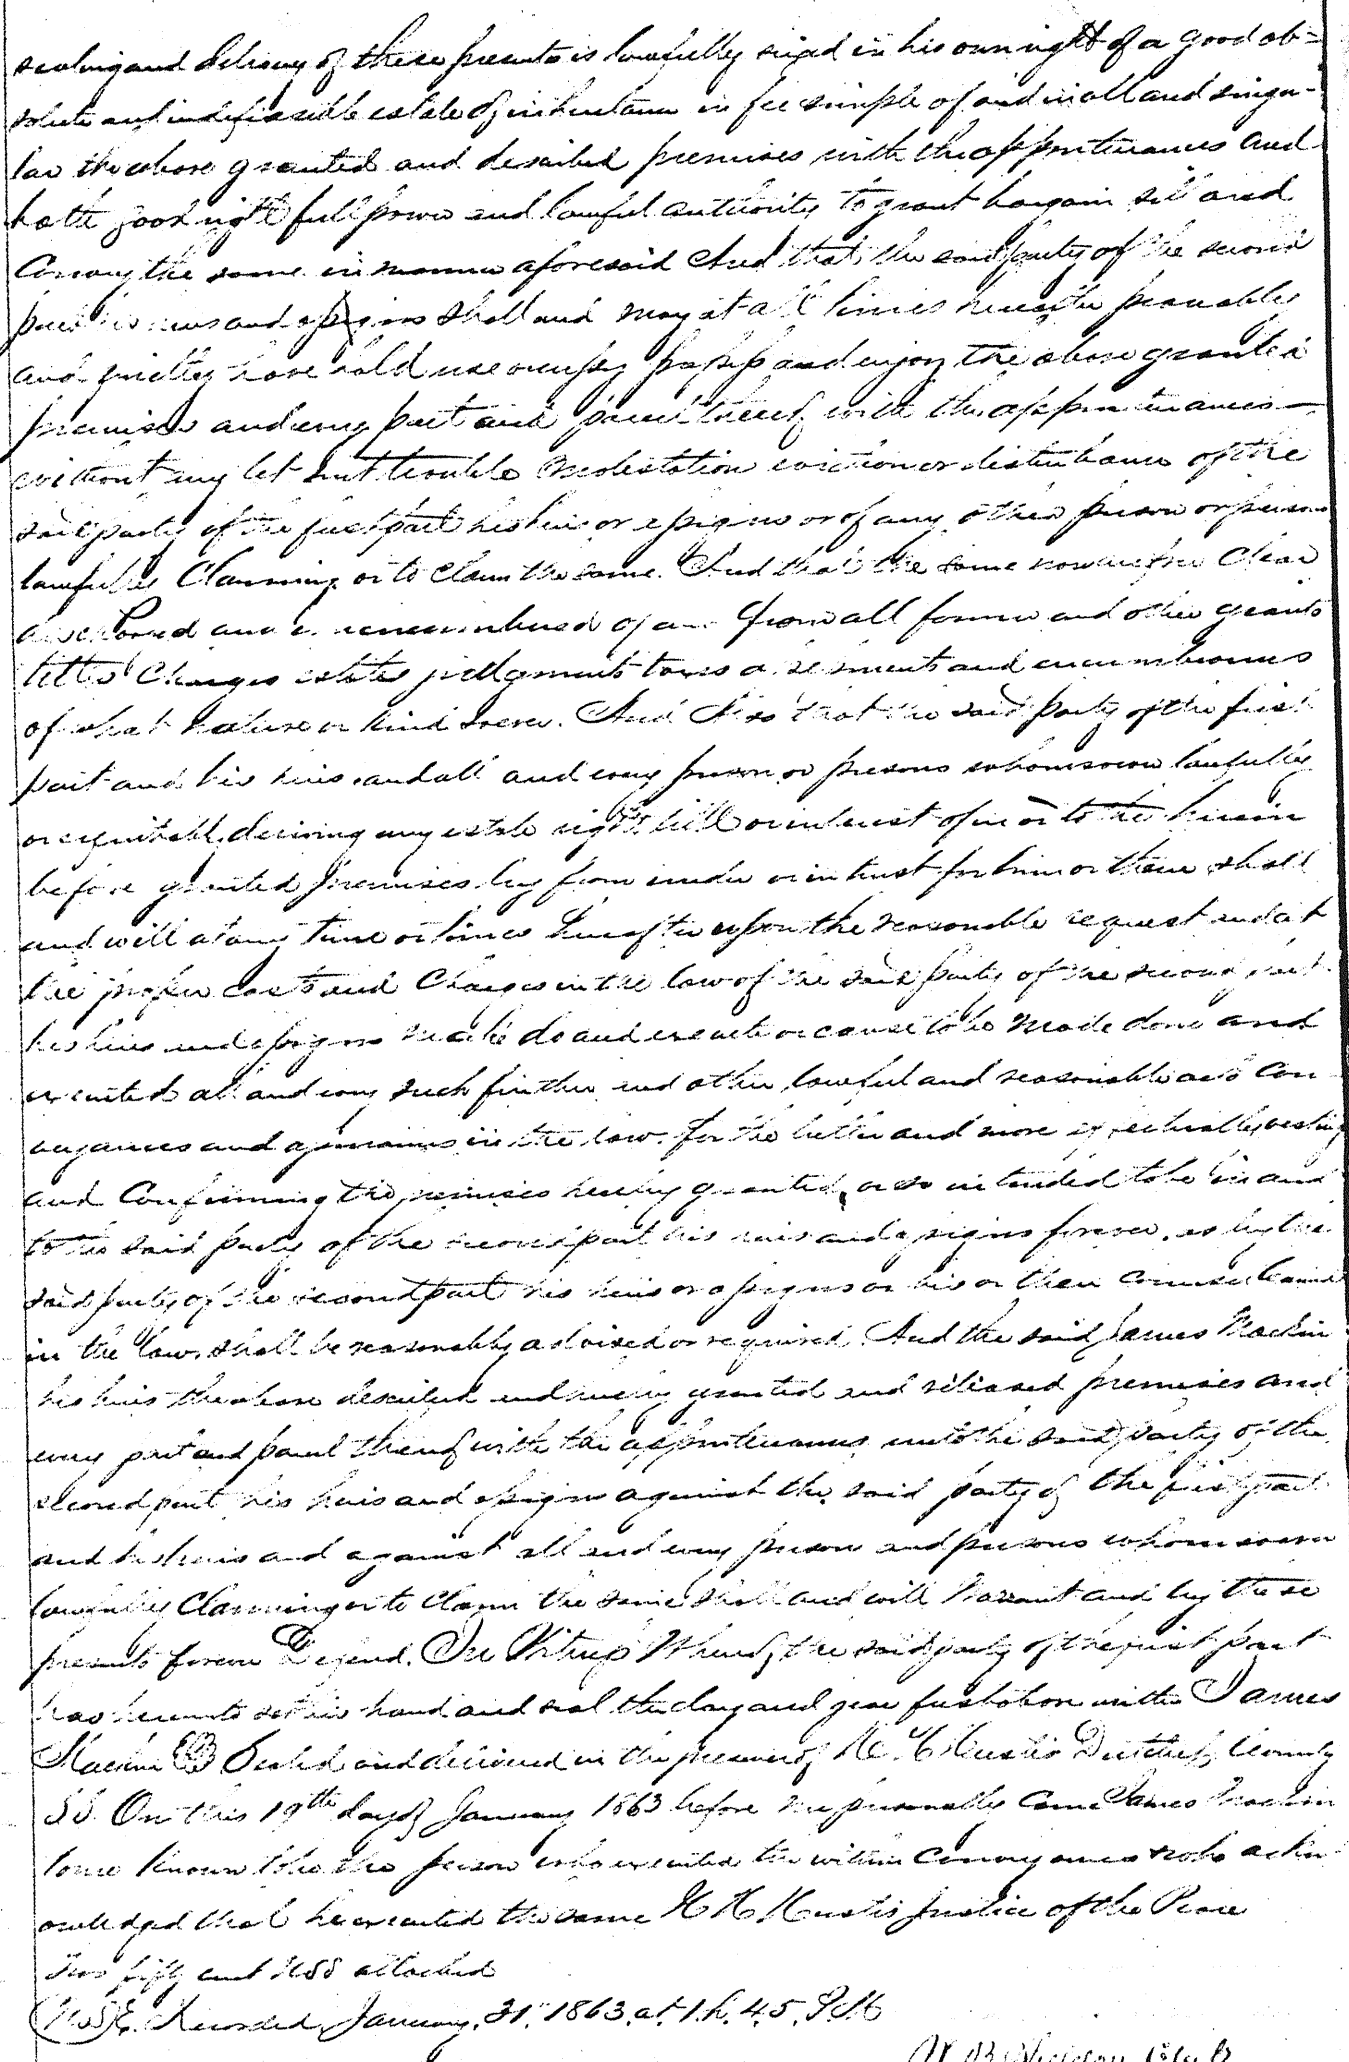 sealing and delivery of these presents is lawfully seized in his own right of a good ab=
solute and indefeasible estate of inheritance in fee simple of and in all and singu-
lar the above granted and described premises with the appurtenances and
hath good right full power and lawful authority to grant bargain sell and
Convey the same in manner aforesaid And that the said party of the second
part his heirs and assigns shall and may at all times hereafter peaceably
and quietly have hold use occupy possess and enjoy the above granted
premises and every part and parcel thereof with the appurtenances —
without any let suit trouble molestation eviction or disturbance of the
said party of the first part his heirs or assigns or of any other person or persons
lawfully Claiming or to Claim the same. And that the same now are free Clear
discharged and unencumbered of and from all former and other grants
titles Charges estates judgments taxes assessments and encumbrances
of what nature or kind soever. And Also that the said party of the first
part and his heirs and all and every person or persons whomsoever lawfully
or equitably deriving any estate right title or interest of in or to the herein
before granted premises by from under or in trust for him or them shall
and will at any time or times hereafter upon the reasonable request and at
the proper costs and Charges in the law of the said party of the second part
his heirs and assigns make do and execute or cause to be made done and
executed all and every such further and other lawful and reasonable acts Con
veyances and assurances in the law for the better and more effectually vesting
and Confirming the premises hereby granted or so intended to be in and
to the said party of the second part his heirs and assigns forever, as by the
said party of the second part his heirs or assigns or his or their Counsel learned
in the law shall be reasonably advised or required And the said James Mackin
his heirs the above described and hereby granted and released premises and
every part and parcel thereof with the appurtenances unto the said party of the
second part his heirs and assigns against the said party of the first part
and his heirs and against all and every person and persons whomsoever
lawfully Claiming or to Claim the same shall and will Warrant and by these
presents forever Defend. In Witness Whereof the said party of the first part
has hereunto set his hand and seal the day and year first above written James
Mackin Sealed and delivered in the presence of H. H Hustis Dutchess County
SS. On this 19th day of January 1863 before me personally Came James Mackin
to me known to be the person who executed the within Conveyance who ackn
owledged that he executed the same H H Hustis Justice of the Peace
Two fifty cent attached
Recorded January, 31, 1863 at 1 h. 45, P.M